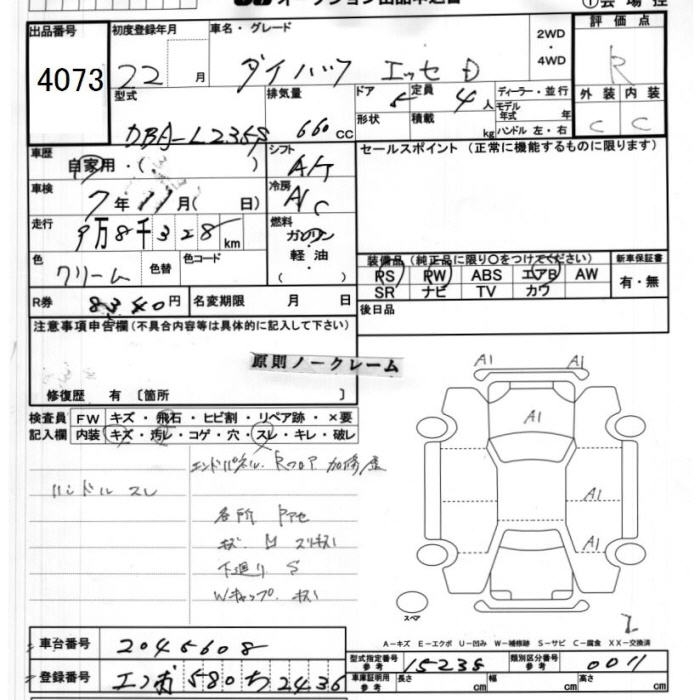 オークション出品申込書 ①会場控
出品番号 初度登録年月 車名・グレード 2WD・4WD 評価点
4073 22 月 ダイハツ エッセ D R
型式 排気量 ドア 5 定員 4人 ディーラー・並行 外装 内装
DBA-L235S 660cc 形状 積載 kg モデル年式 年 ハンドル 左・右 C C
車歴 自家用・( ) シフト A/T セールスポイント (正常に機能するものに限ります)
車検 7年11月( 日) 冷房 A/C
走行 9万8千328km 燃料 ガソリン
色 クリーム 色替 色コード 軽油 ( )
装備品 (純正品に限り○をつけてください) 新車保証書
PS PW ABS エアB AW 有・無
SR ナビ TV カワ
R券 8340円 名変期限 月 日 後日品
注意事項申告欄(不具合内容等は具体的に記入して下さい)
原則ノークレーム
修復歴 有 〔箇所 〕
検査員 FW キズ・飛石・ヒビ割・リペア跡・×要
記入欄 内装 キズ・汚レ・コゲ・穴・スレ・キレ・破レ
エンドパネル、Rフロア 加修歴
ハンドル スレ
各所
下廻り S
Wキャップ キズ
A1 A1
A1
A1
A1
スペア
A-キズ E-エクボ U-凹み W-補修跡 S-サビ C-腐食 XX-交換済
車台番号 2045608
型式指定番号 参考 15238 類別区分番号 参考 0011
登録番号 580 ち 2436
車庫証明用 参考 長さ cm 幅 cm 高さ cm